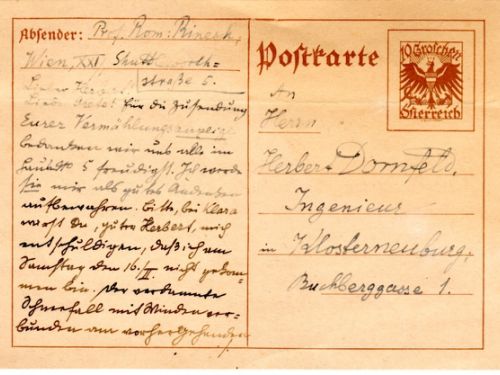 Absender: Prof. Rom. Rinesch,
Wien, XXI Shuttleworth=
straße 5.
Lieber Herbert!
Liebe Grete! Für die Zusendung
Eurer Vermählungsanzeige
bedanken wir uns alle im
5 freudigst. Ich werde
sie mir als gutes Andenken
aufbewahren. Bitte, bei Klara
wirst Du, guter Herbert, mich
entschuldigen, daß ich am
Samstag den 16./II nicht gekom=
men bin. Der verdammte
Schneefall mit Winden ver=
bunden am vorhergehenden
Postkarte
10 Groschen
Österreich
An
Herrn
Herbert Dornfeld,
Ingenieur
in Klosterneuburg,
Buchberggasse 1.